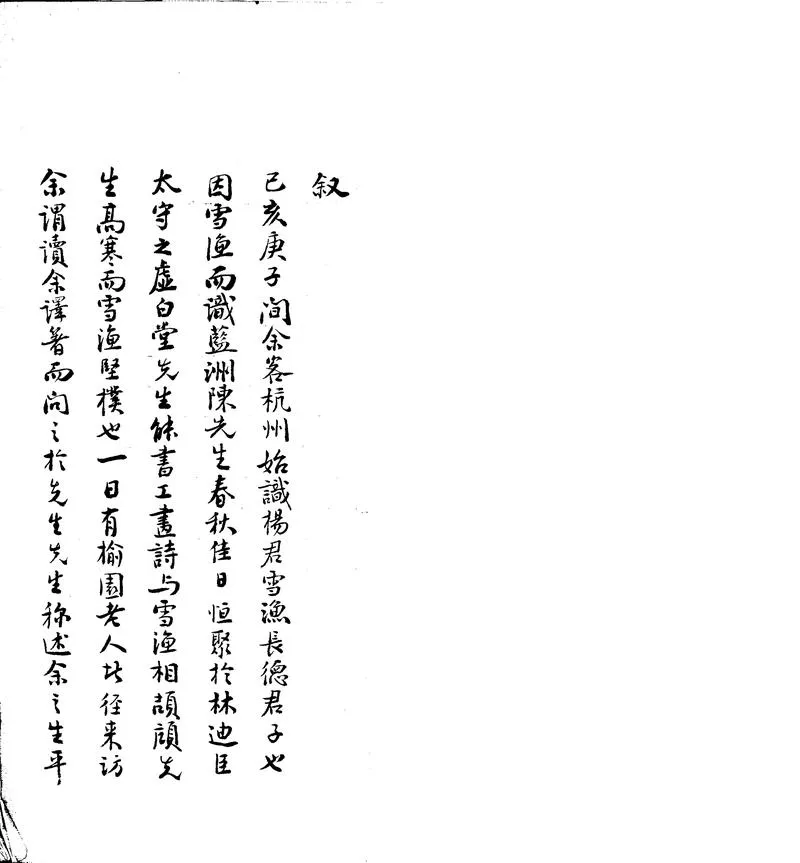 叙
已亥庚子间余客杭州始識楊君雪漁長德君子也
因雪漁而識藍洲陳先生春秋佳日恒聚於林迪臣
太守之虛白堂先生能書工畫詩与雪漁相頡頏先
生高寒而雪漁堅樸也一日有榆園老人
径来訪
余謂讀余譯著而問之於先生先生称述余之生平